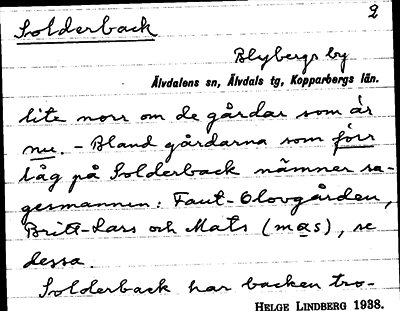 Solderback 2
Blybergs by
Älvdalens sn, Älvdals tg, Kopparbergs län.
lite norr om de gårdar som är
nu. - Bland gårdarna som förr
låg på Solderback nämner sa-
gesmannen: Faut-Olovgården,
Britt-Lars och Mats (mąs), se
dessa.
Solderback har backen tro-
HELGE LINDBERG 1938.